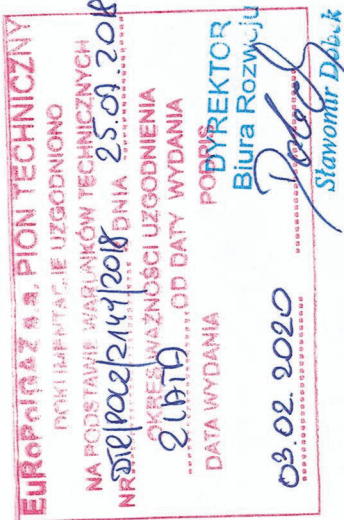 EuRoPol GAZ s.a. PION TECHNICZNY
DOKUMENTACJE UZGODNIONO
NA PODSTAWIE WARUNKÓW TECHNICZNYCH
NR DNIA 25.07.2018
OKRES WAŻNOŚCI UZGODNIENIA
2 LATA OD DATY WYDANIA
DATA WYDANIA PODPIS
DYREKTOR
Biura Rozwoju
03.02.2020
Sławomir Dobek